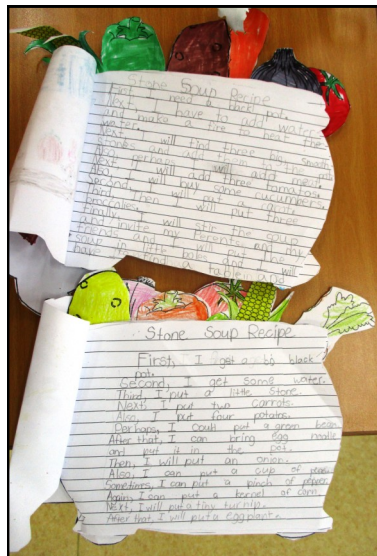 Stone Soup Recipe
First, I need a black pot.
Next, I have to add water
and make a fire to heat the
water.
Next, I will find three big smooth
stones and add them to the pot.
Next, perhaps I will add meat.
Also, I will add three tomatos.
Second, I will buy some cucumbers.
Then, I will put three
broccolies.
Finally, I will stir the soup
and invite my Parents and my
friends and I will put the
soup in little boles and I will
have to find a table and
Stone Soup Recipe
First, I get a big black
pot.
Second, I get some water.
Third, I put a little Stone.
Next, I put two carrots.
Also, I put four potatos.
Perhaps, I could put a green bean.
After that, I can bring egg
and put it in the pot.
Then, I will put an onion.
Also, I can put a cup of peas.
Sometimes, I can put a pinch of pepper.
Again, I can put a kernel of corn.
Next, I will put a tiny turnip.
After that, I will put a eggplant.